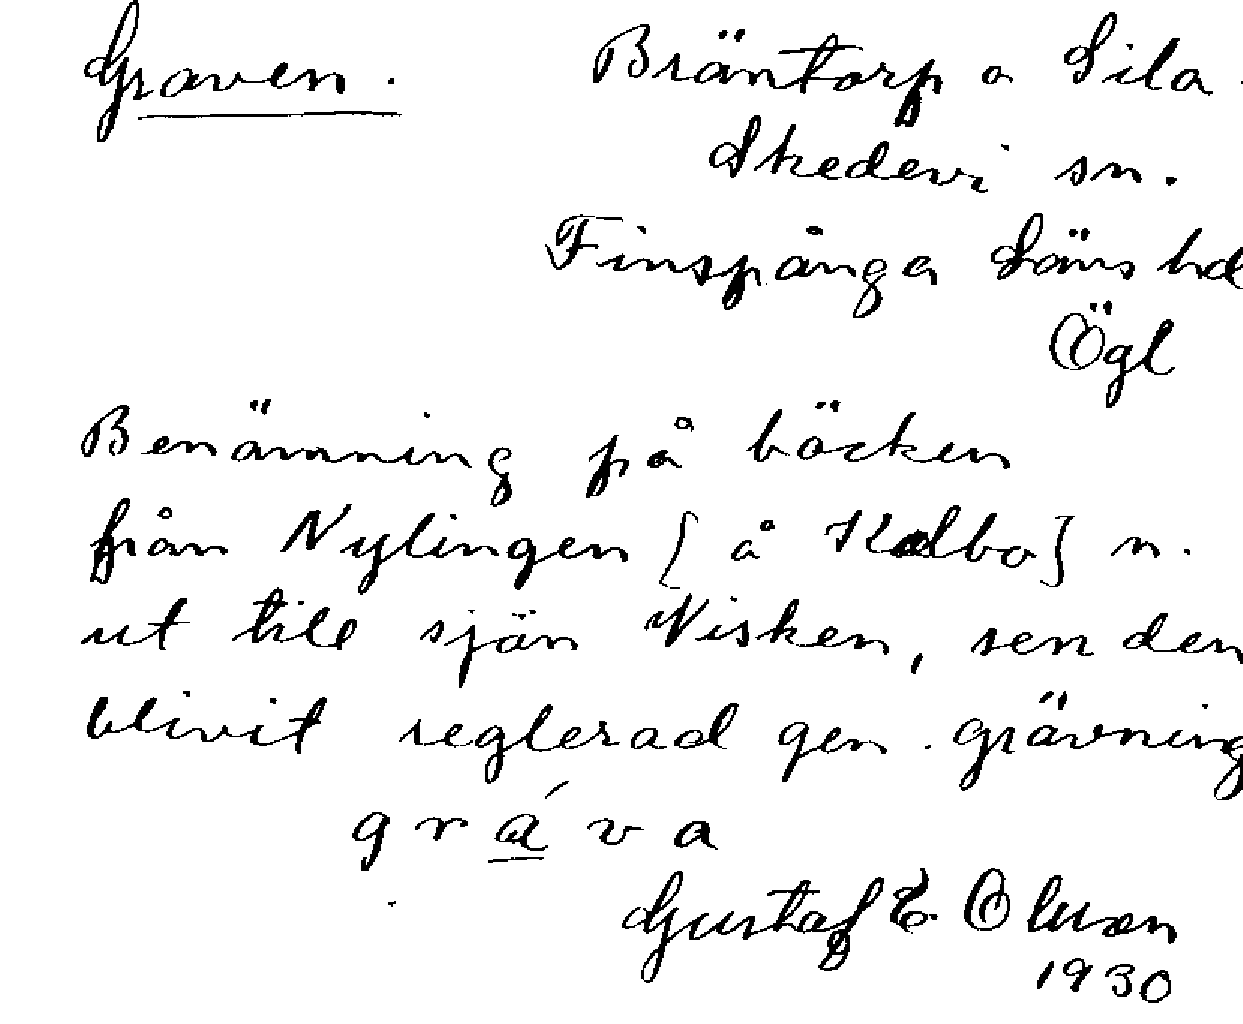 Graven.
Bräntorp o Sila.
Skedevi sn.
Finspånga Läns hd
Ögl
Benämning på bäcken
från Nylingen [å Kalbo] n.
ut till sjön Visken, sen den
blivit reglerad gen. grävning
gráva
Gustaf E. Olsson
1930